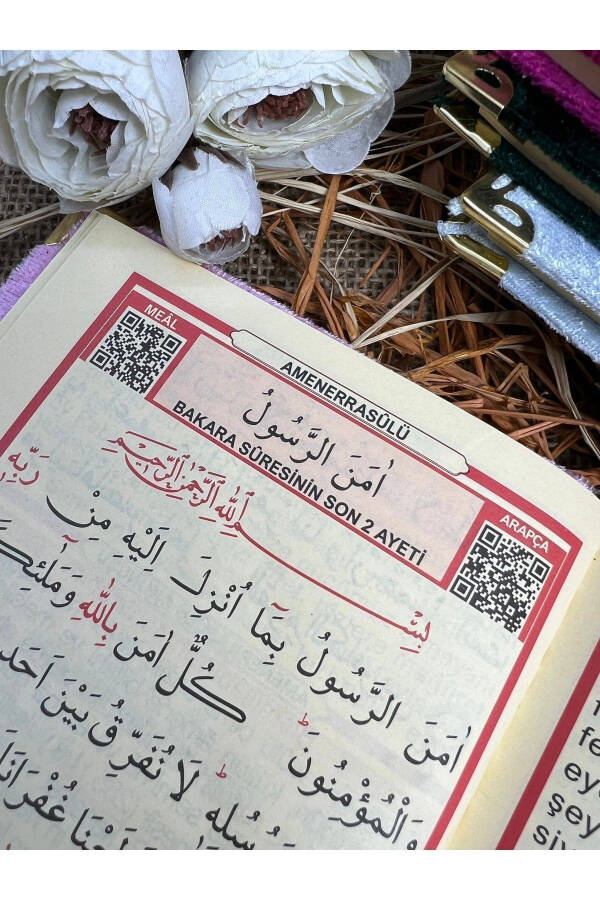 MEÂL
AMENERRASÛLÜ
اٰمَنَ الرَّسُولُ
BAKARA SÛRESİNİN SON 2 AYETİ
ARAPÇA
بِسْمِ اللّٰهِ الرَّحْمٰنِ الرَّحِيمِ
اٰمَنَ الرَّسُولُ بِمَٓا اُنْزِلَ اِلَيْهِ مِنْ رَبِّه۪
وَالْمُؤْمِنُونَۜ كُلٌّ اٰمَنَ بِاللّٰهِ
لَا نُفَرِّقُ بَيْنَ
غُفْرَانَ
fe
ey
şey